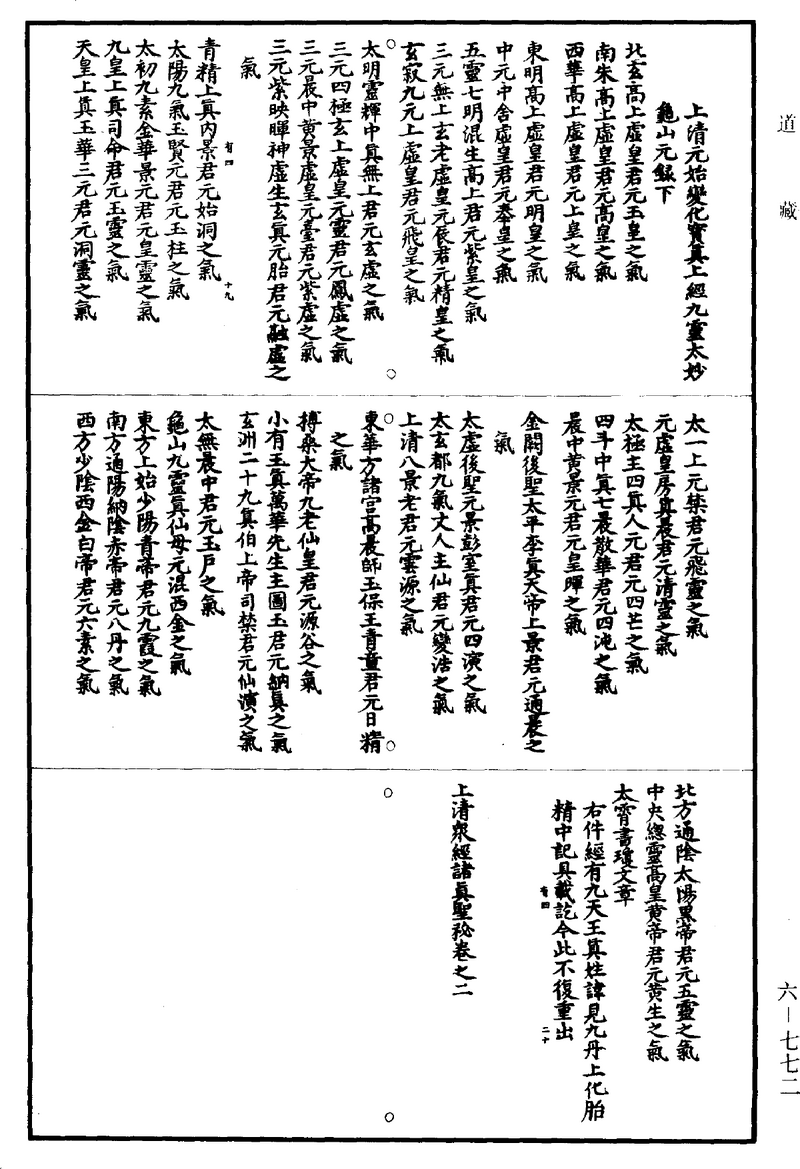 道藏
上清元始變化寶真上經九靈太妙
龜山元籙下
北玄高上虛皇君元玉皇之氣
南朱高上虛皇君元高皇之氣
西華高上虛皇君元上皇之氣
東明高上虛皇君元明皇之氣
中元中舍虛皇君元奉皇之氣
五靈七明混生高上君元紫皇之氣
三元無上玄老虛皇元辰君元精皇之氣
玄寂九元上虛皇君元飛皇之氣
太明靈輝中真無上君元玄虛之氣
三元四極玄上虛皇元靈君元鳳虛之氣
三元晨中黃景虛皇元臺君元紫虛之氣
三元紫映暉神虛生玄真元胎君元融虛之
氣
青精上真內景君元始洞之氣
有四
十九
太陽九氣玉賢元君元玉柱之氣
太初九素金華景元君元皇靈之氣
九皇上真司命君元玉靈之氣
天皇上真玉華三元君元洞靈之氣
太一上元禁君元飛靈之氣
元虛皇房真晨君元清靈之氣
太極主四真人元君元四芒之氣
四斗中真七晨散華君元四沌之氣
晨中黃景元君元皇暉之氣
金闕後聖太平李真天帝上景君元通晨之
氣
太虛後聖元景彭室真君元四演之氣
太玄都九氣丈人主仙君元變浩之氣
上清八景老君元雲源之氣
東華方諸宮高晨師玉保王青童君元日精
之氣
搏桑大帝九老仙皇君元源谷之氣
小有玉真萬華先生主圖玉君元納真之氣
玄洲二十九真伯上帝司禁君元仙演之氣
太無晨中君元玉戶之氣
龜山九靈真仙母元混西金之氣
東方上始少陽青帝君元九霞之氣
南方通陽納陰赤帝君元八丹之氣
西方少陰西金白帝君元六素之氣
北方通陰太陽黑帝君元五靈之氣
中央總靈高皇黃帝君元黃生之氣
太霄書瓊文章
右件經有九天王真姓諱見九丹上化胎
精中記具載訖今此不復重出
有四
二十
上清眾經諸真聖祕卷之二
六－七七二